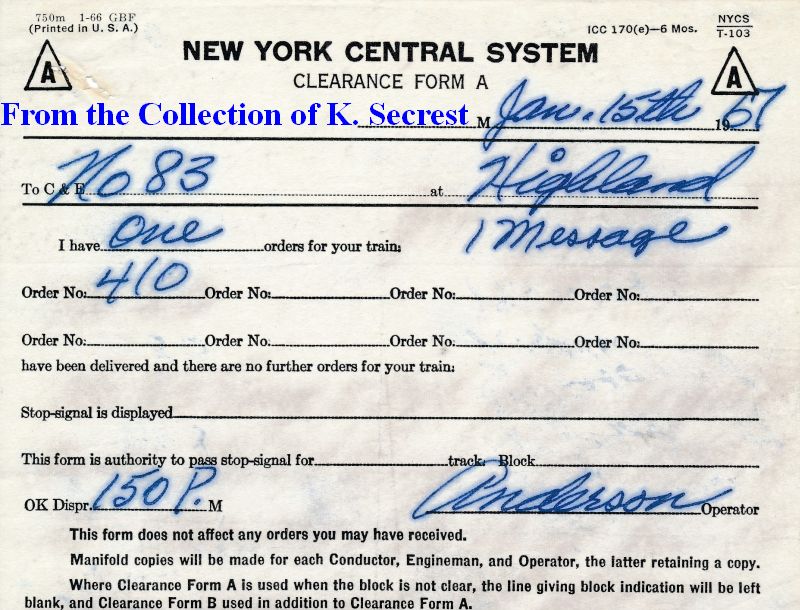 750m 1-66 GBF
(Printed in U. S. A.)
ICC 170(e)—6 Mos.
NYCS
T-103
A
NEW YORK CENTRAL SYSTEM
A
CLEARANCE FORM A
From the Collection of K. Secrest
M Jan. 15th 1967
To C & E No 83 at Highland
I have one orders for your train; 1 Message
Order No. 410 Order No. Order No. Order No.
Order No. Order No. Order No. Order No.
have been delivered and there are no further orders for your train.
Stop-signal is displayed
This form is authority to pass stop-signal for track. Block
OK Dispr. 150 P. M Anderson Operator
This form does not affect any orders you may have received.
Manifold copies will be made for each Conductor, Engineman, and Operator, the latter retaining a copy.
Where Clearance Form A is used when the block is not clear, the line giving block indication will be left
blank, and Clearance Form B used in addition to Clearance Form A.